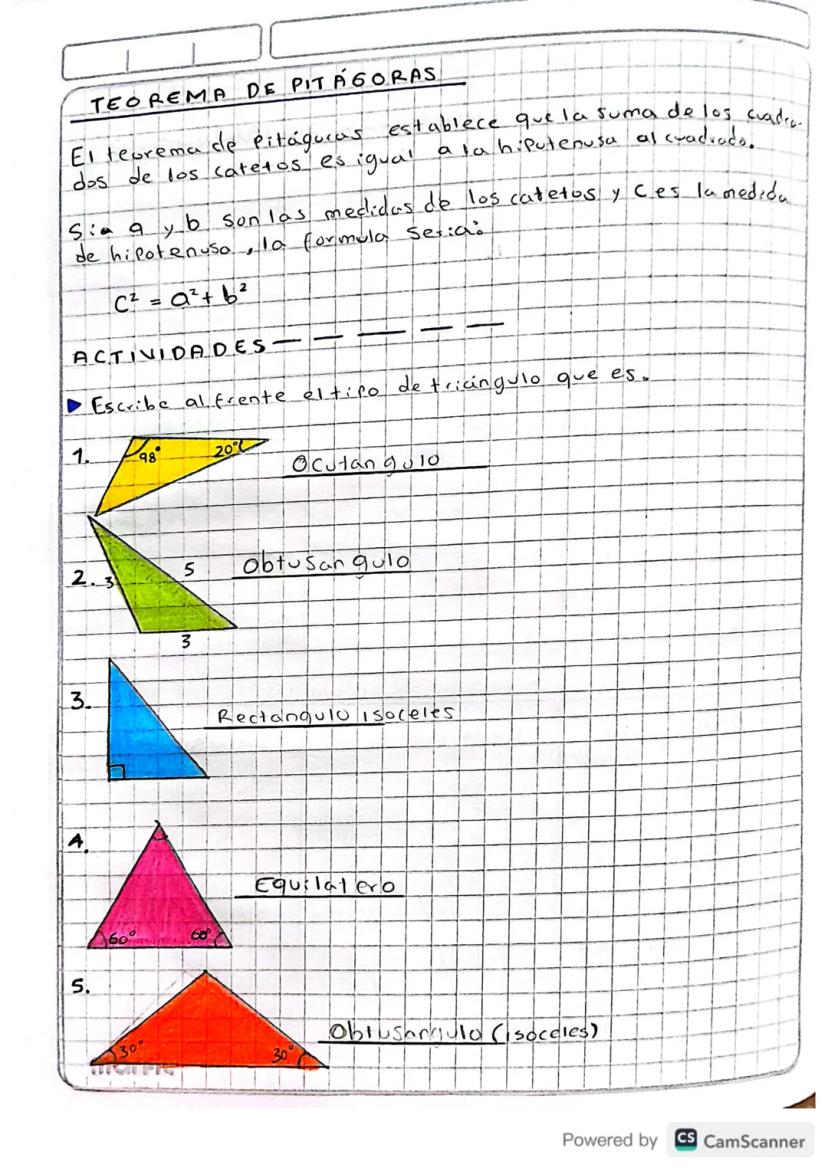 TEOREMA DE PITÁGORAS
El teorema de Pitágoras establece que la suma de los cuadra-
dos de los catetos es igual a la hipotenusa al cuadrado.
Si a y b son las medidas de los catetos y c es la medida
de hipotenusa, la formula seria:
C² = a² + b²
ACTIVIDADES
Escribe al frente el tipo de triángulo que es.
1. 98° 20° Ocutangulo
2. 3 5 Obtusangulo
3
3. Rectangulo isoceles
4. Equilatero
60° 60°
5. Obtusangulo (isoceles)
30° 30°
Powered by CS CamScanner